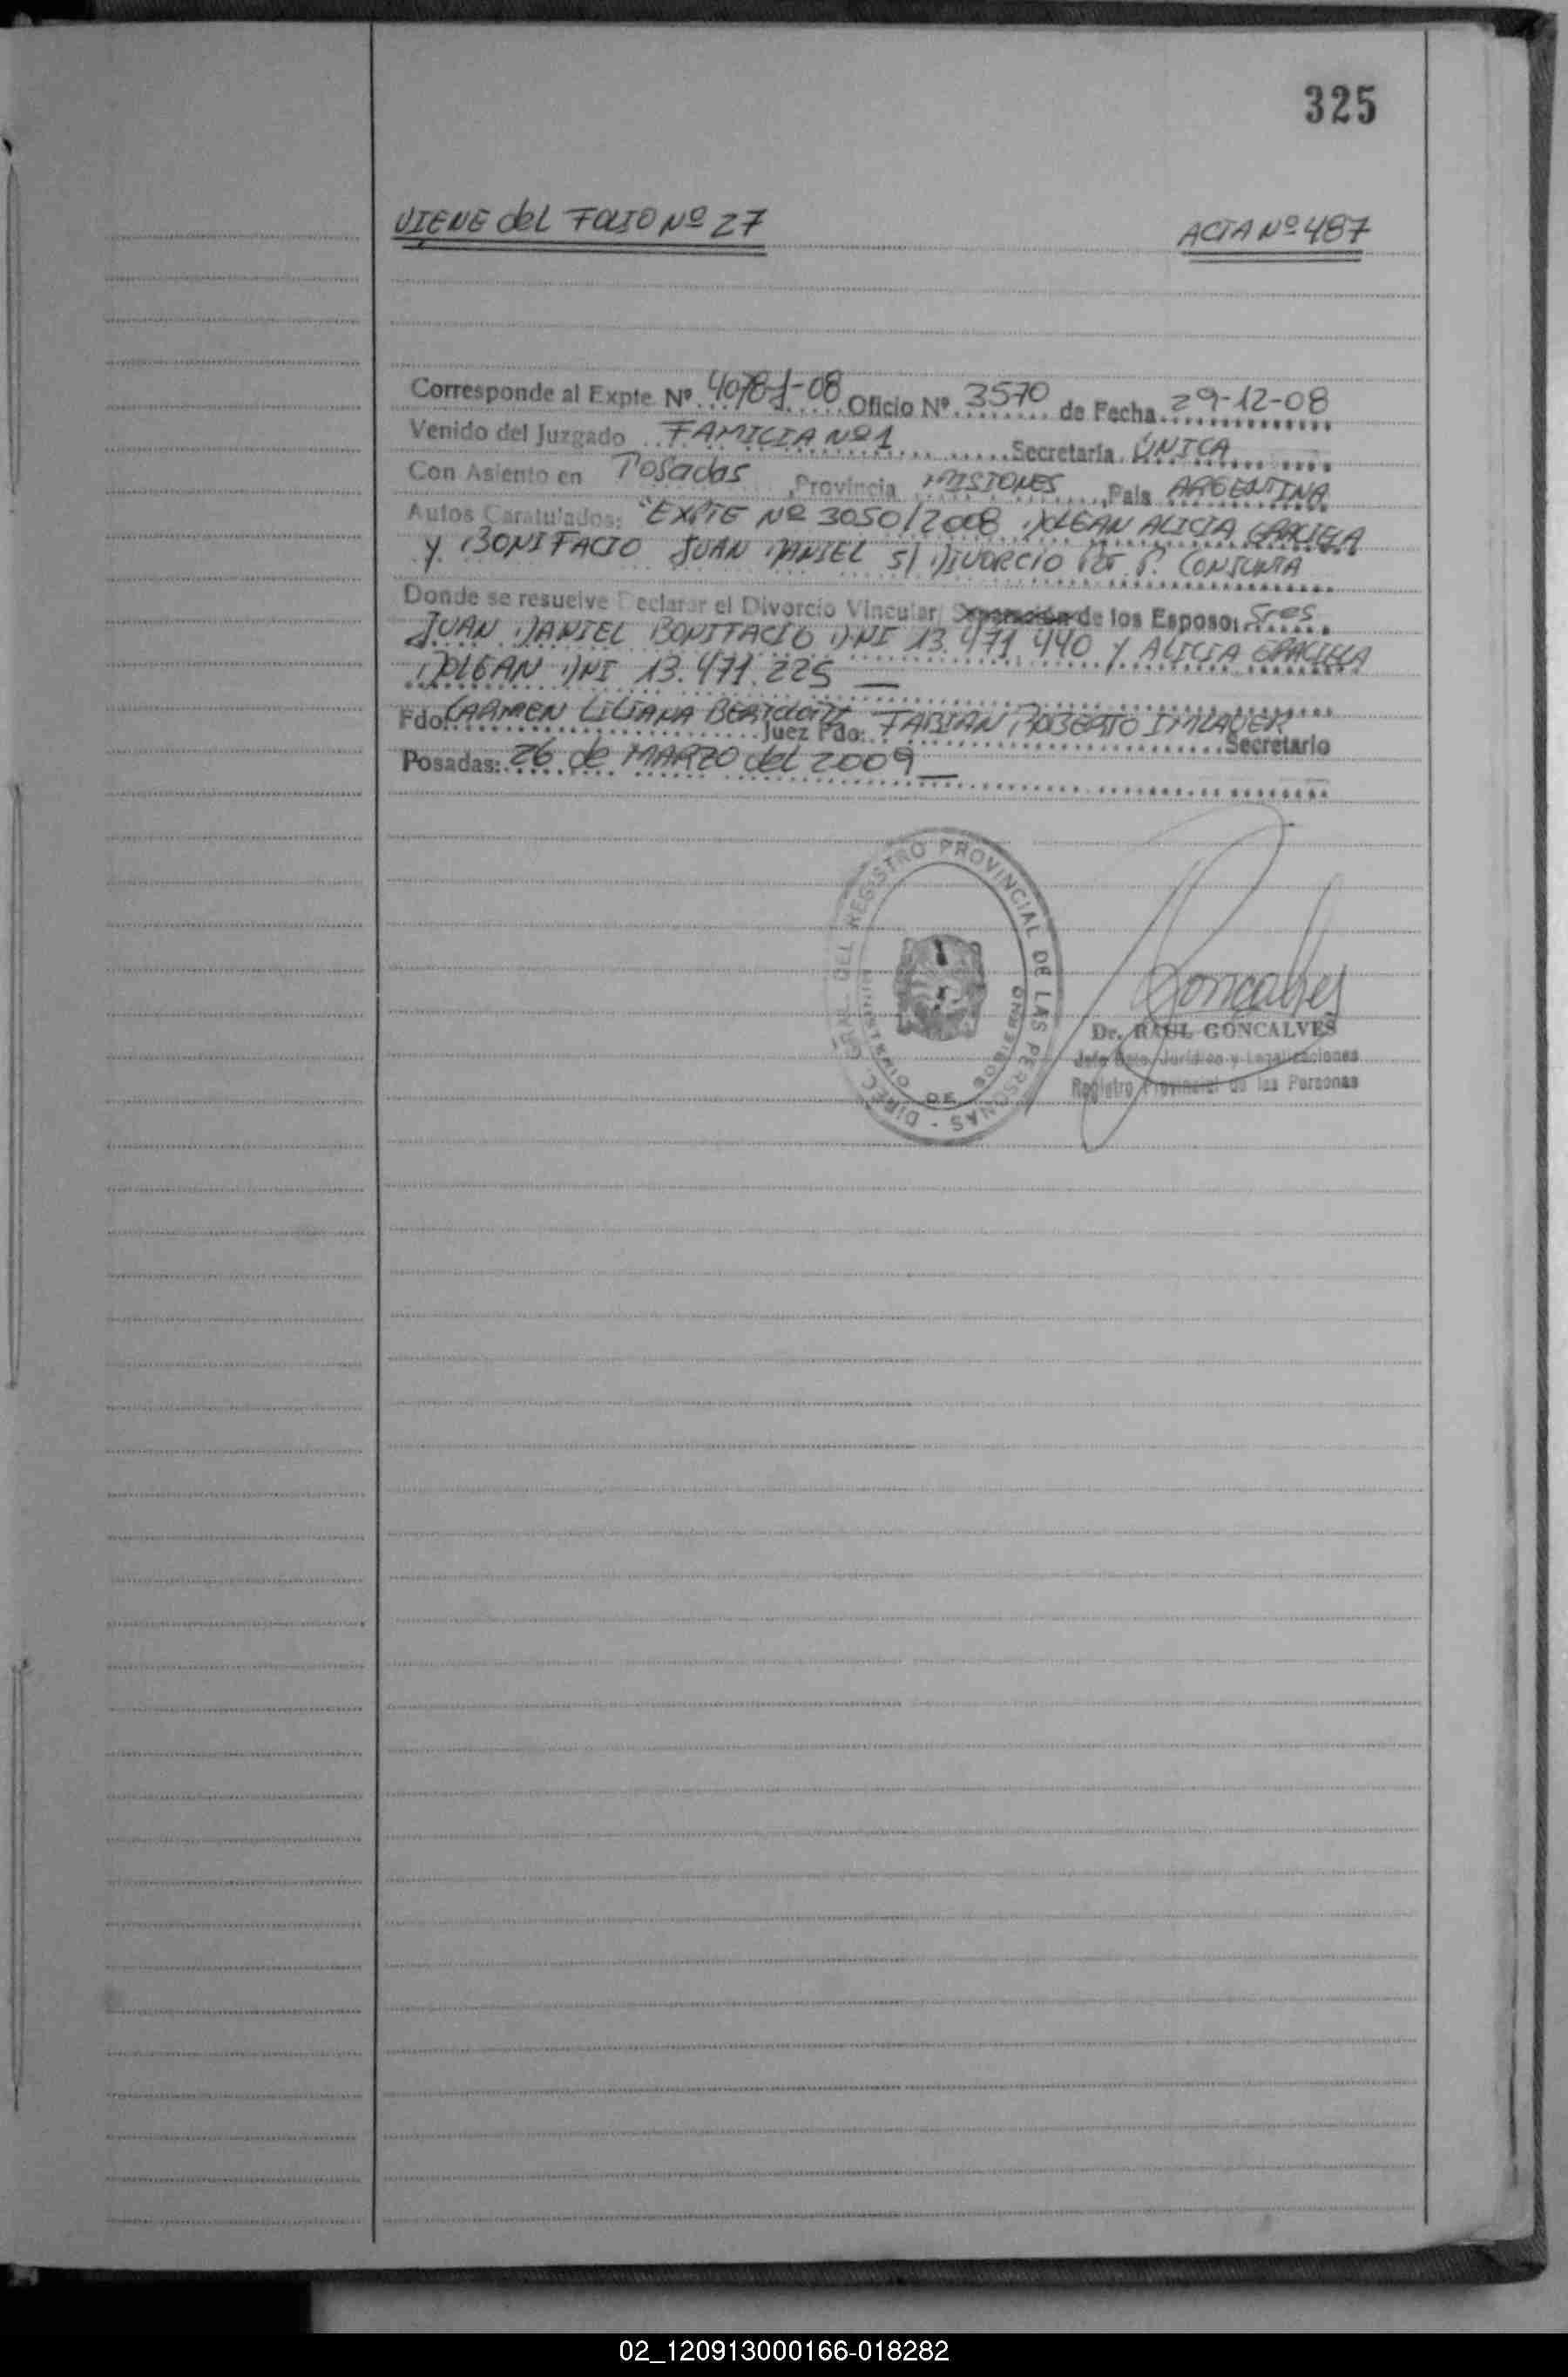 325
VIENE del FOLIO Nº 27 ACTA Nº 487
Corresponde al Expte Nº 4078-J-08 Oficio Nº 3570 de Fecha 29-12-08
Venido del Juzgado FAMILIA Nº 1 Secretaría ÚNICA
Con Asiento en Posadas, Provincia MISIONES, País ARGENTINA
Autos Caratulados: "EXPTE Nº 3050/2008 DOLEAN ALICIA GRACIELA
Y BONIFACIO JUAN DANIEL S/ DIVORCIO POR P. CONJUNTA
Donde se resuelve Declarar el Divorcio Vincular Separación de los Esposos Sres
JUAN DANIEL BONIFACIO DNI 13.471.440 Y ALICIA GRACIELA
DOLEAN DNI 13.471.225 —
Fdo: CARMEN LILIANA Juez Fdo: FABIAN ROBERTO IMLAUER Secretario
Posadas: 26 de MARZO del 2009 —
DIREC. GRAL. DEL REGISTRO PROVINCIAL DE LAS PERSONAS -
MINISTERIO DE GOBIERNO
Goncalves
Dr. RAUL GONCALVES
Jefe Dpto. Jurídico y Legalizaciones
Registro Provincial de las Personas
02_120913000166-018282